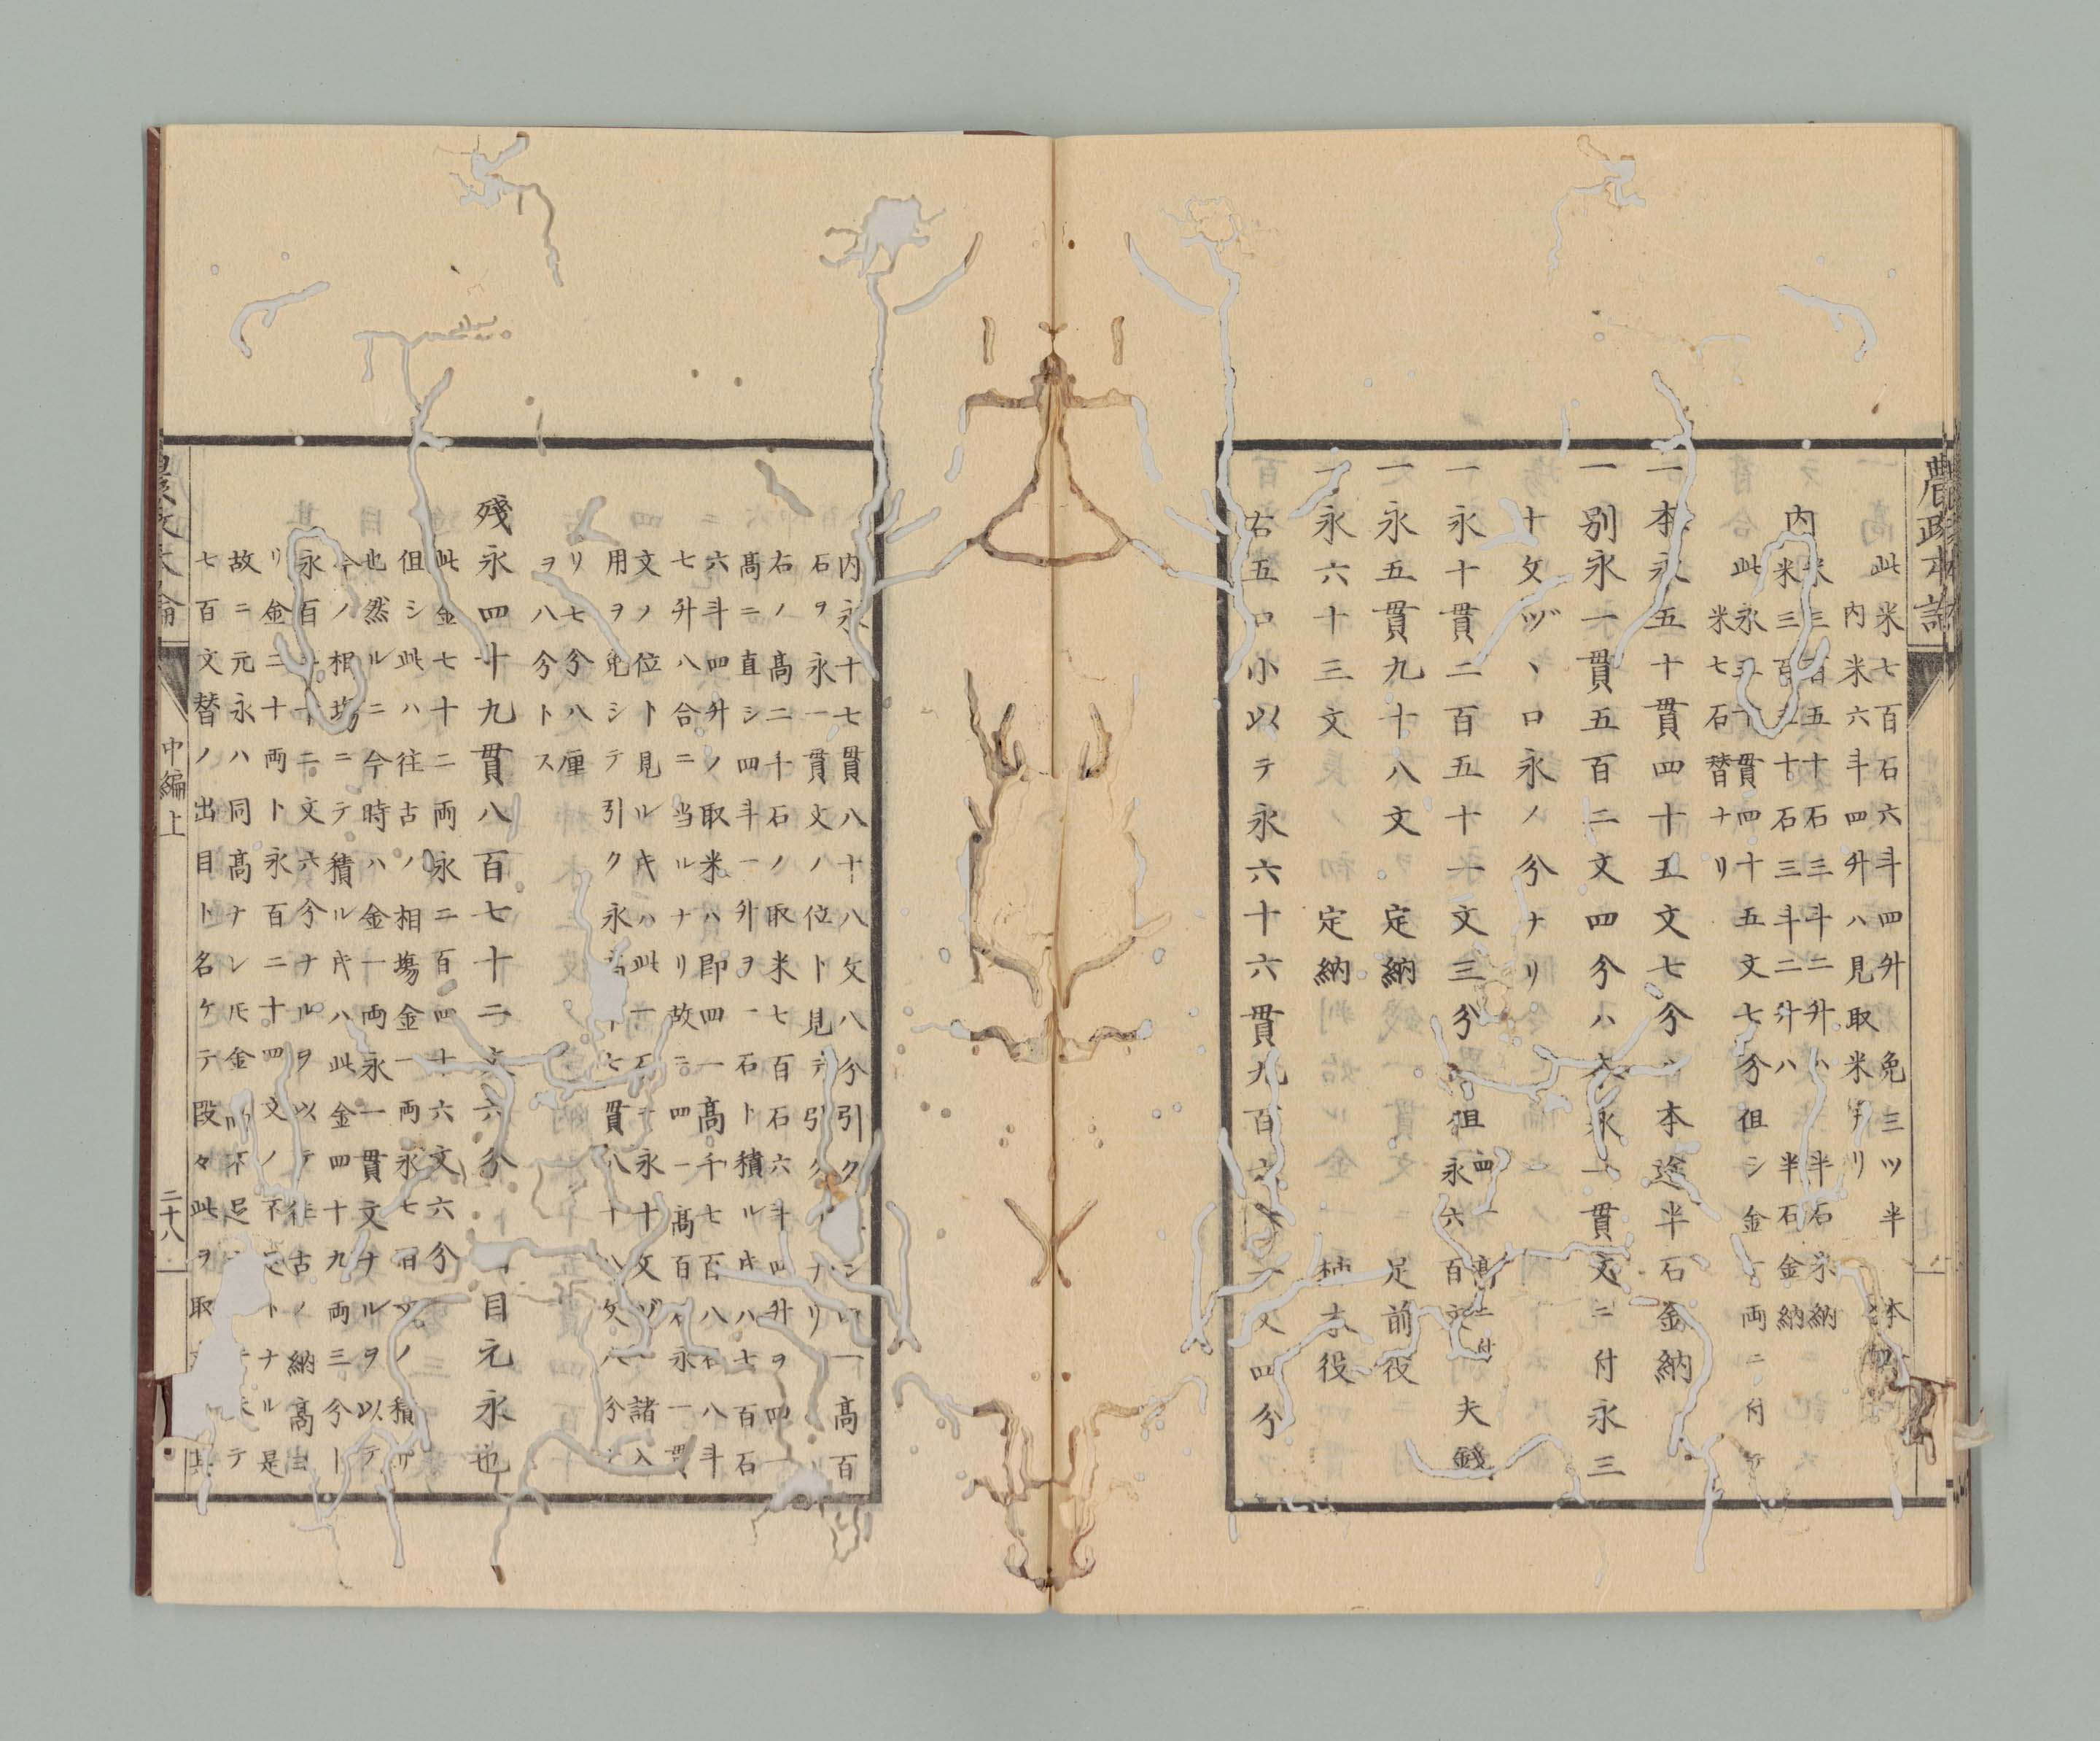 農政本論
此米七百石六斗四升 免三ツ半 本
内米六斗四升ハ見取米ナリ
内 米三百五十石三斗二升ハ半石永納
米三百五十石三斗二升ハ 半石金納
此永五十貫四十五文七分但シ金一両ニ付
米七石替ナリ
一本永五十貫四十五文七分ハ本途半石金納
一別永一貫五百二文四分ハ本永一貫文ニ付永三
十文ヅヽロ永ノ分ナリ
一永十貫二百五十一文三分 但四一高ニ付 永六百文 夫錢
一永五貫九十八文 定納 足前役
一永六十三文 定納 柿木役
右五口小以テ永六十六貫九百六十文四分
内永十七貫八十八文八分引 高百
石ヲ永一貫文ノ位ト見テ引クナリ
右ノ高二千石ノ取米七百石六斗四升ヲ四一
高ニ直シ四斗一升ヲ一石ト積ル片ハ七百石
六斗四升ノ取米ハ即四一高千七百八石八斗
七升八合ニ当ルナリ故ニ四一高百石永一貫
文ノ位ト見ル片ハ此一石ニ永十文ヅヽ諸入
用ヲ免シテ引ク永高十七貫八十八文八分ナ
リ七分八厘
ヲ八分トス
殘永四十九貫八百七十二文六分 目元永也
此金七十二両永二百四十六文六分
但シ此ハ往古ノ相場金一両永七百文ノ積リ
也然ルニ今時ハ金一両永一貫文ナルヲ以テ
今ノ相場ニテ積ル片ハ此金四十九両三分ト
永百二十二文六分ナルヲ以テ往古ノ納高ヨ
リ金二十両ト永百二十四文ノ不足トナル是
故ニ元永ハ同高ナレ𪜈金
七百文替ノ出目ト名ケテ段々此ヲ取
中編上
二十八